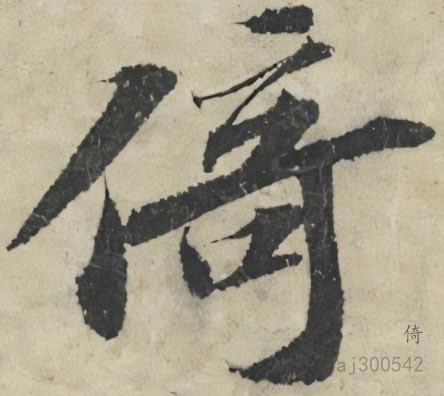 倚
倚
aj300542